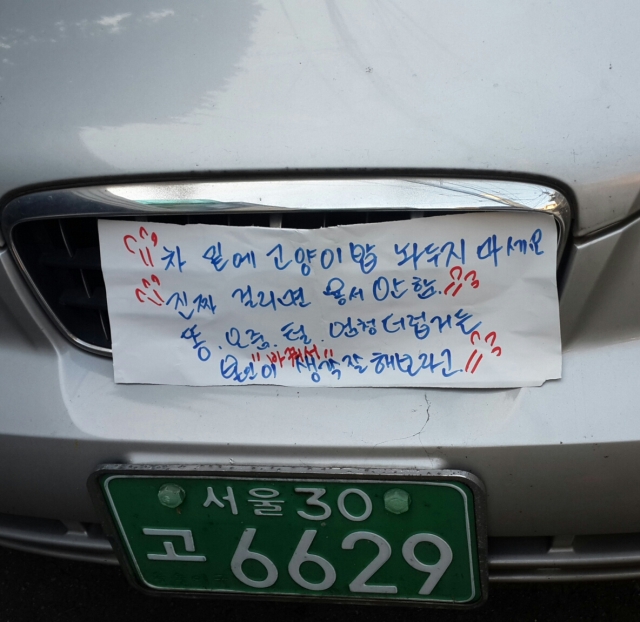 !! 차 밑에 고양이밥 놔두지 마세요
!! 진짜 걸리면 용서 안함. !!
똥. 오줌. 털. 엄청 더럽거든
본인이 바꿔서 생각 잘 해보라고. !!
서울 30
고 6629